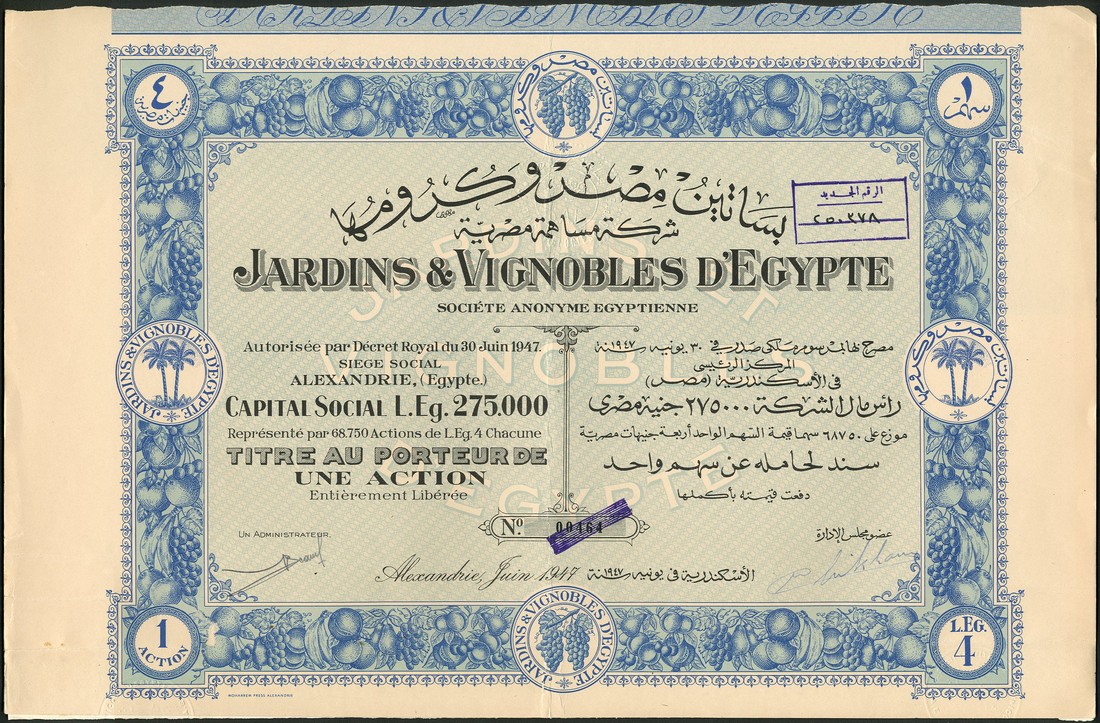 JARDINS & VIGNOBLES D'EGYPTE
٤
جنيهات مصرية
بساتين مصر وكرومها
١
سهم
بساتين مصر وكرومها
شركة مساهمة مصرية
الرقم الجديد
٢٥٠٣٧٨
JARDINS & VIGNOBLES D'EGYPTE
SOCIÉTE ANONYME EGYPTIENNE
JARDINS ET
VIGNOBLES
D'EGYPTE
Autorisée par Décret Royal du 30 Juin 1947.
SIEGE SOCIAL
ALEXANDRIE, (Egypte.)
CAPITAL SOCIAL L.Eg. 275.000
Représenté par 68.750 Actions de L.Eg. 4 Chacune
TITRE AU PORTEUR DE
UNE ACTION
Entièrement Libérée
مصرح بها بمرسوم ملكى صدر فى ٣٠ يونيه سنة ١٩٤٧
المركز الرئيسى
فى الأسكندرية (مصر)
رأس مال الشركة ٢٧٥٠٠٠ جنيه مصرى
موزع على ٦٨٧٥٠ سهما قيمة السهم الواحد أربعة جنيهات مصرية
سند لحامله عن سهم واحد
دفعت قيمته بأكملها
JARDINS & VIGNOBLES D'EGYPTE
بساتين مصر وكرومها
Nº. 00464
UN ADMINISTRATEUR.
عضو مجلس الإدارة
Alexandrie, Juin 1947
الأسكندرية فى يونيه سنة ١٩٤٧
1
ACTION
JARDINS & VIGNOBLES D'EGYPTE
L.EG.
4
MOHARREM PRESS ALEXANDRIE